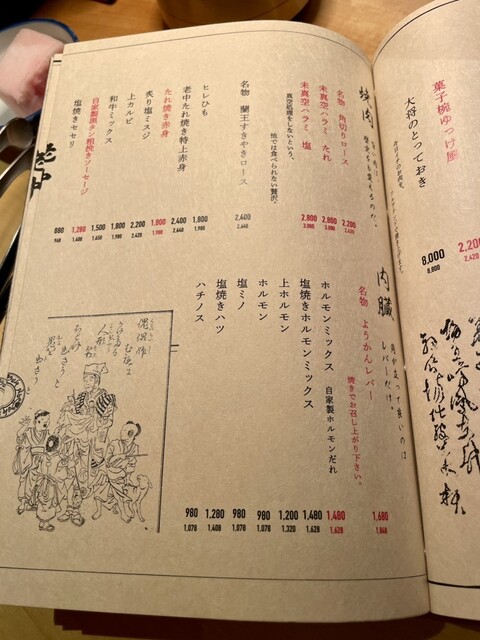 菓子椀ゆっけ風
2,200
2,420
大将のとっておき
8,000
8,800
焼肉
名物 角切りロース
2,200
2,420
未真空ハラミ たれ
2,800
3,080
未真空ハラミ 塩
2,800
3,080
真空処理をしないという、
他では食べられない贅沢。
名物 蘭王すきやきロース
2,400
2,640
ヒレひも
1,800
1,980
老中たれ焼き特上赤身
2,400
2,640
たれ焼き赤身
1,800
1,980
炙り塩ミスジ
2,200
2,420
上カルビ
1,800
1,980
和牛ミックス
1,500
1,650
自家製黒タン粗挽きソーセージ
1,280
1,408
塩焼きセセリ
880
968
内臓
角が立って良いのは
レバーだけ。
名物 ようかんレバー
焼きでお召し上がり下さい。
1,680
1,848
ホルモンミックス 自家製ホルモンだれ
1,480
1,628
塩焼きホルモンミックス
1,480
1,628
上ホルモン
1,200
1,320
ホルモン
980
1,078
塩ミノ
980
1,078
塩焼きハツ
1,280
1,408
ハチノス
980
1,078